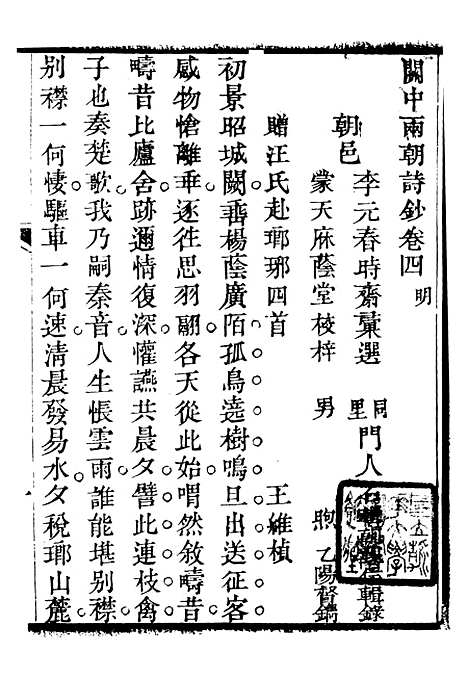 關中兩朝詩鈔卷四 明
朝邑 李元春時齋彙選 同里 門人
蒙天庥蔭堂校梓 男 煦乙陽督鐫
贈汪氏赴瑯琊四首 王維楨
初景昭城闕垂楊蔭廣陌孤鳥遶樹鳴旦出送征客
感物愴離乖逐徃思羽翮各天從此始喟然敘疇昔
疇昔比廬舍跡邇情復深懽讌共晨夕譬此連枝禽
子也奏楚歌我乃嗣秦音人生悵雲雨誰能堪别襟
别襟一何悽驅車一何速清晨發易水夕稅瑯山麓